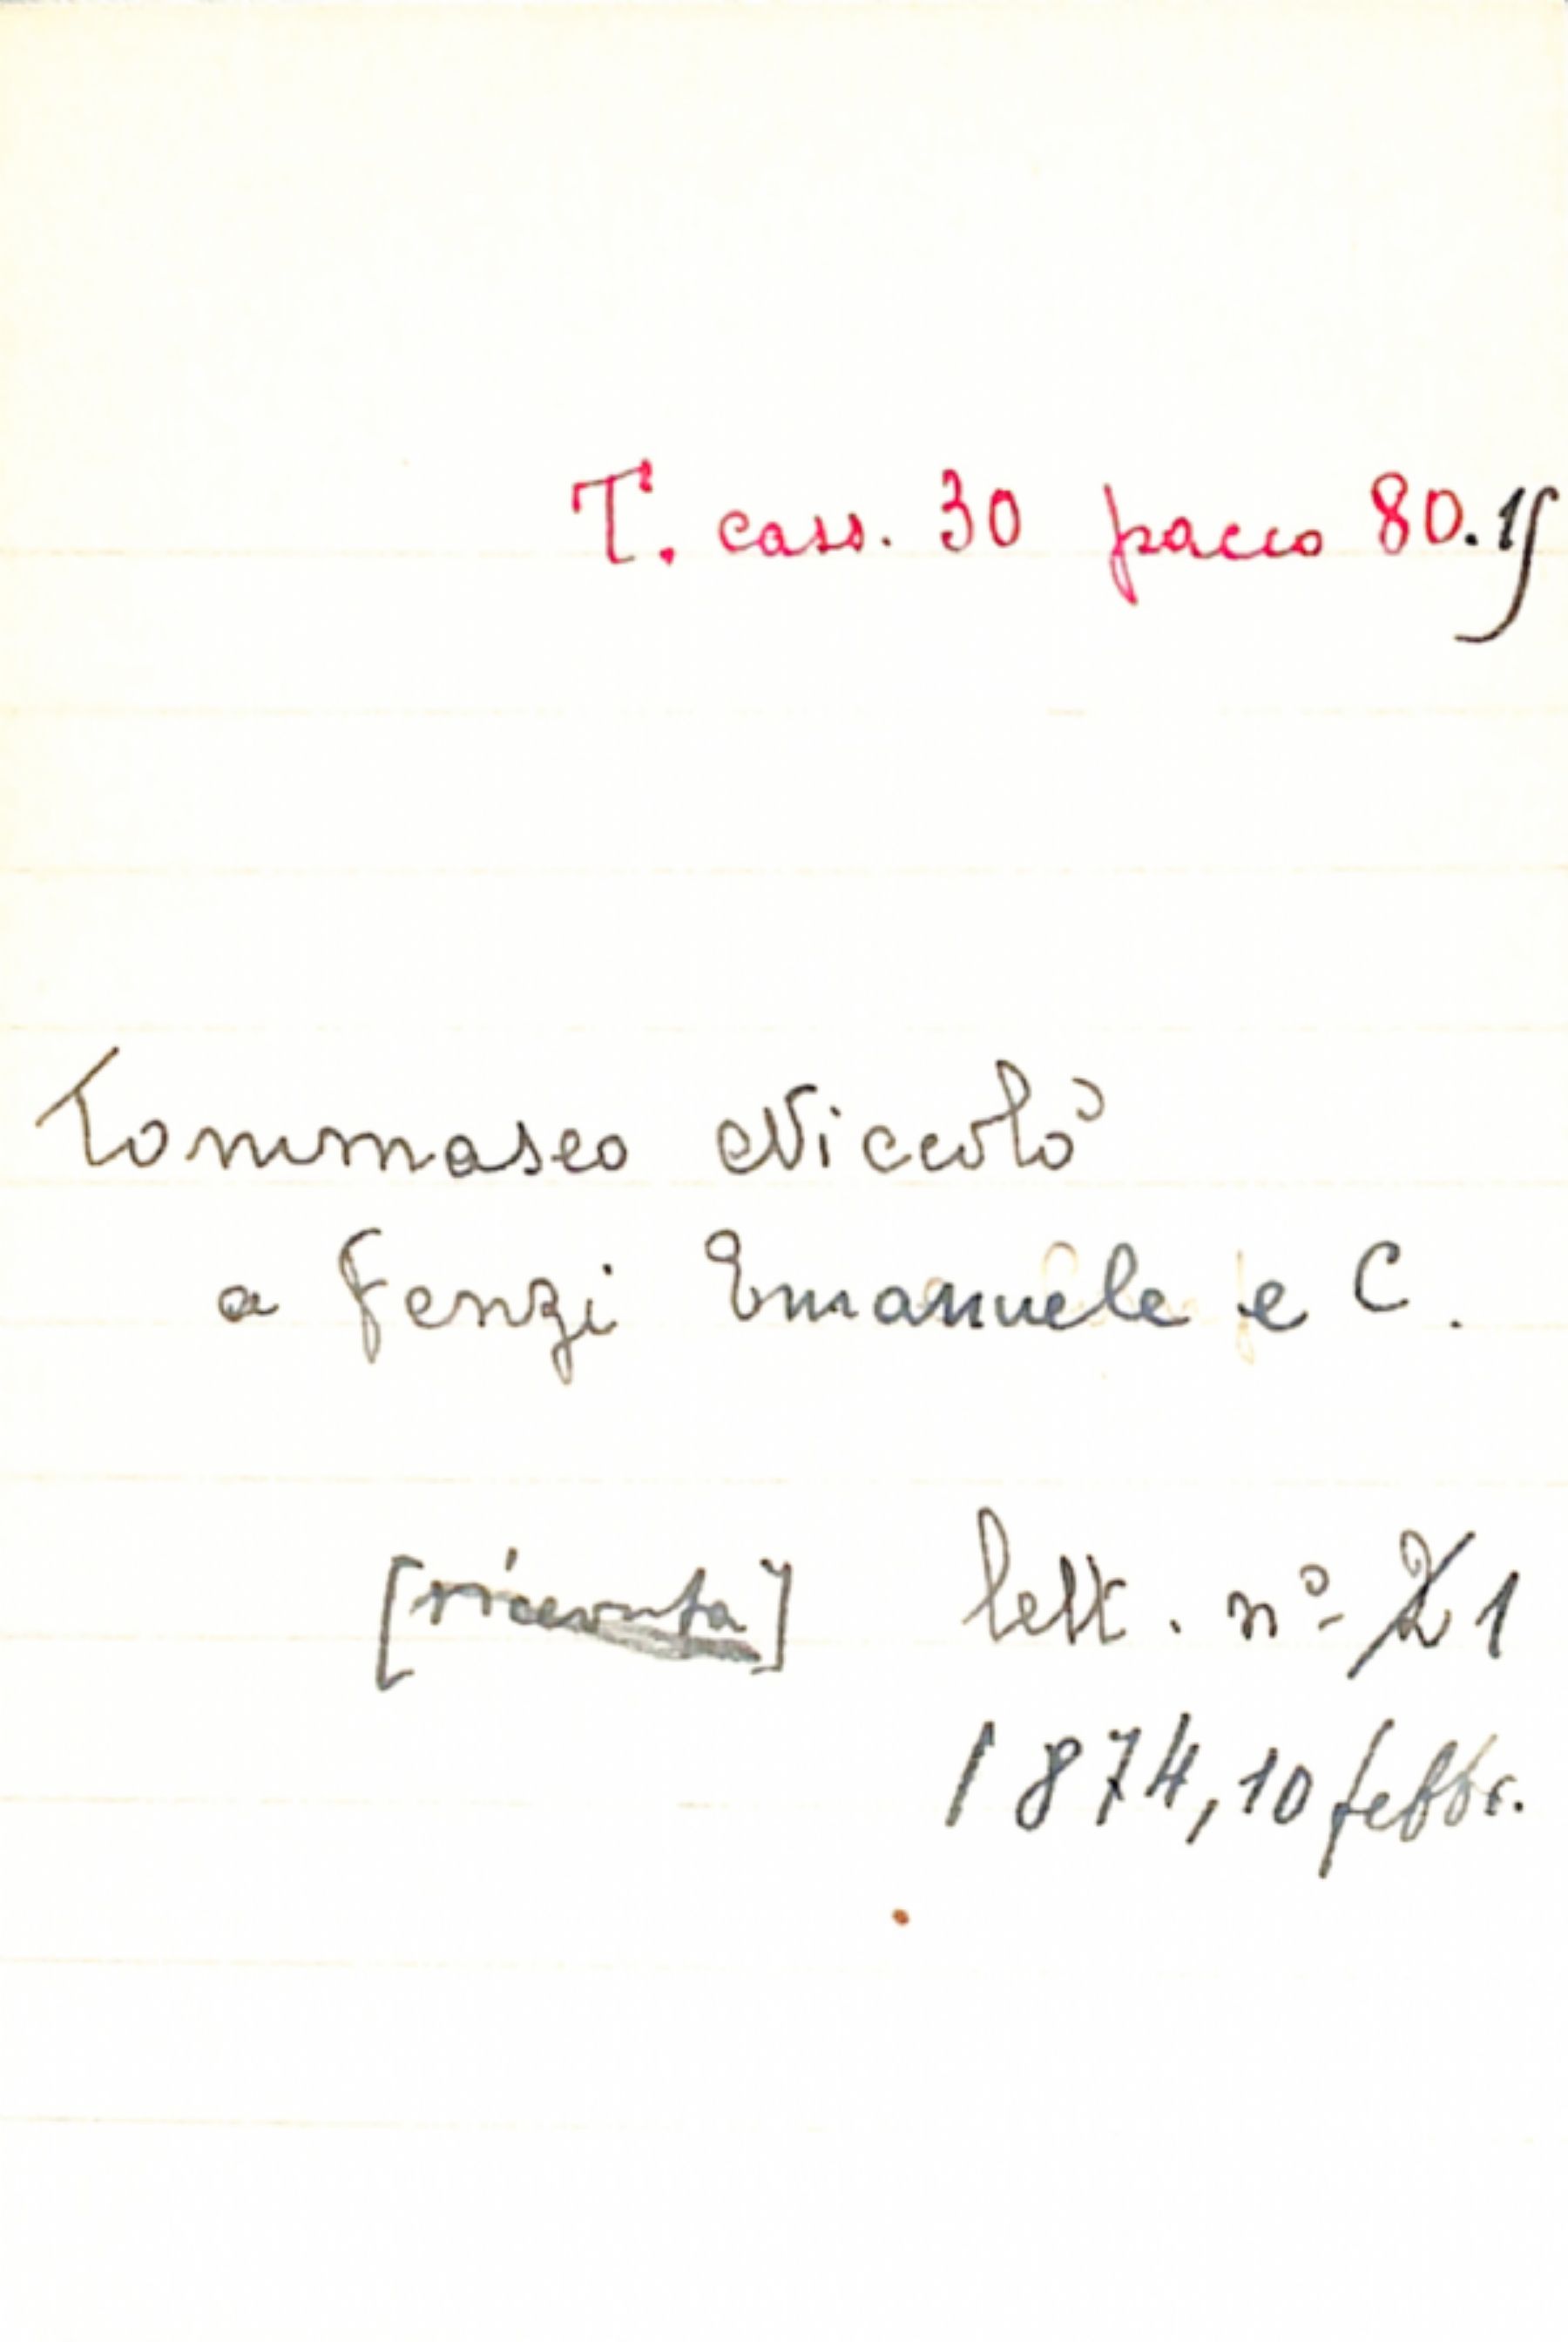 T. cass. 30 pacco 80.15
Tommaseo Niccolò
a Fenzi Emanuele e C.
[ricevuta] lett. nº 1
1874, 10 febbr.